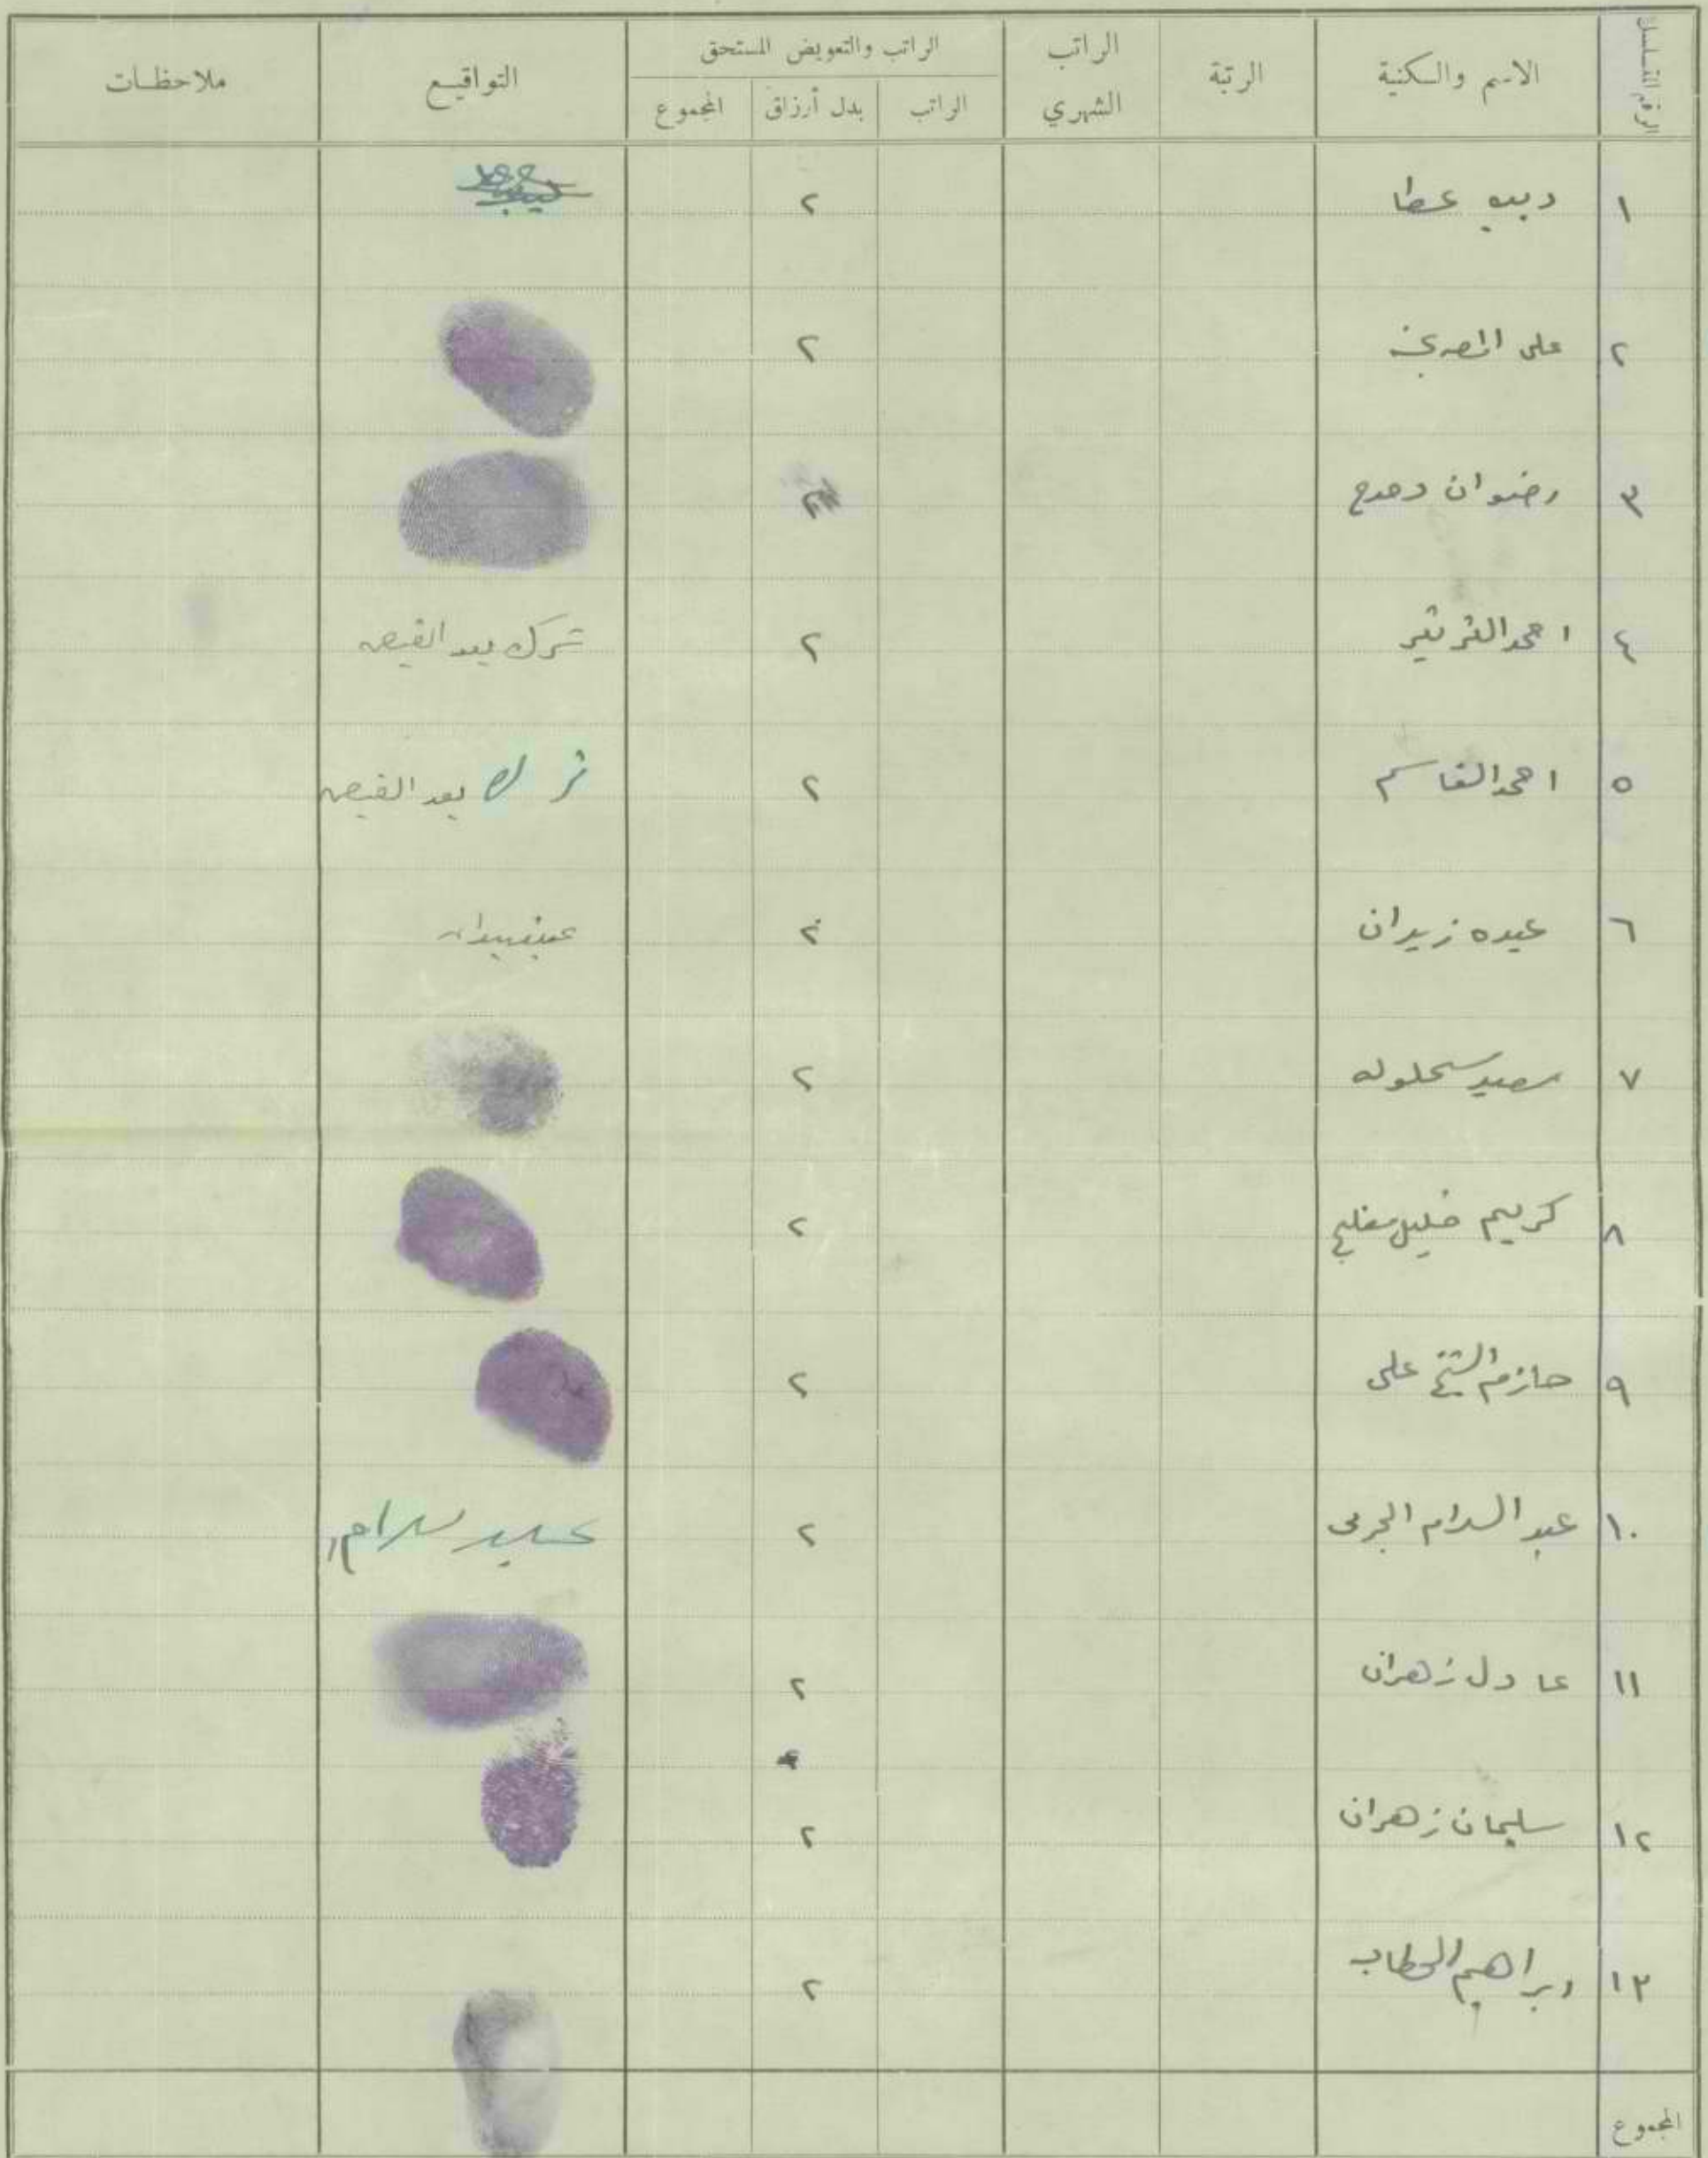 الرقم المتسلسل الاسم والكنية الرتبة الراتب الشهري الراتب والتعويض المستحق التواقيع ملاحظات
الراتب بدل أرزاق المجموع
١ ديبه عطا ٢
٢ على ٢
٣ رضوان دحدح ٢
٤ احمد ٢ ترك بعد القبض
٥ احمد القاسم ٢ ترك بعد القبض
٦ عبده زيدان ٢
٧ سعيد سحلوله ٢
٨ كريم خليل مفلح ٢
٩ حازم الشيخ على ٢
١٠ عبد السلام الجرمى ٢ عبد سلام
١١ عادل زهران ٢
١٢ سليمان زهران ٢
١٣ ابراهيم الحطاب ٢
المجموع